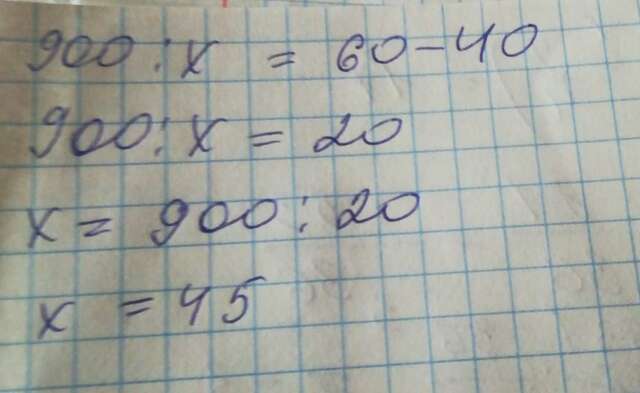 900 : x = 60 - 40
900 : x = 20
x = 900 : 20
x = 45